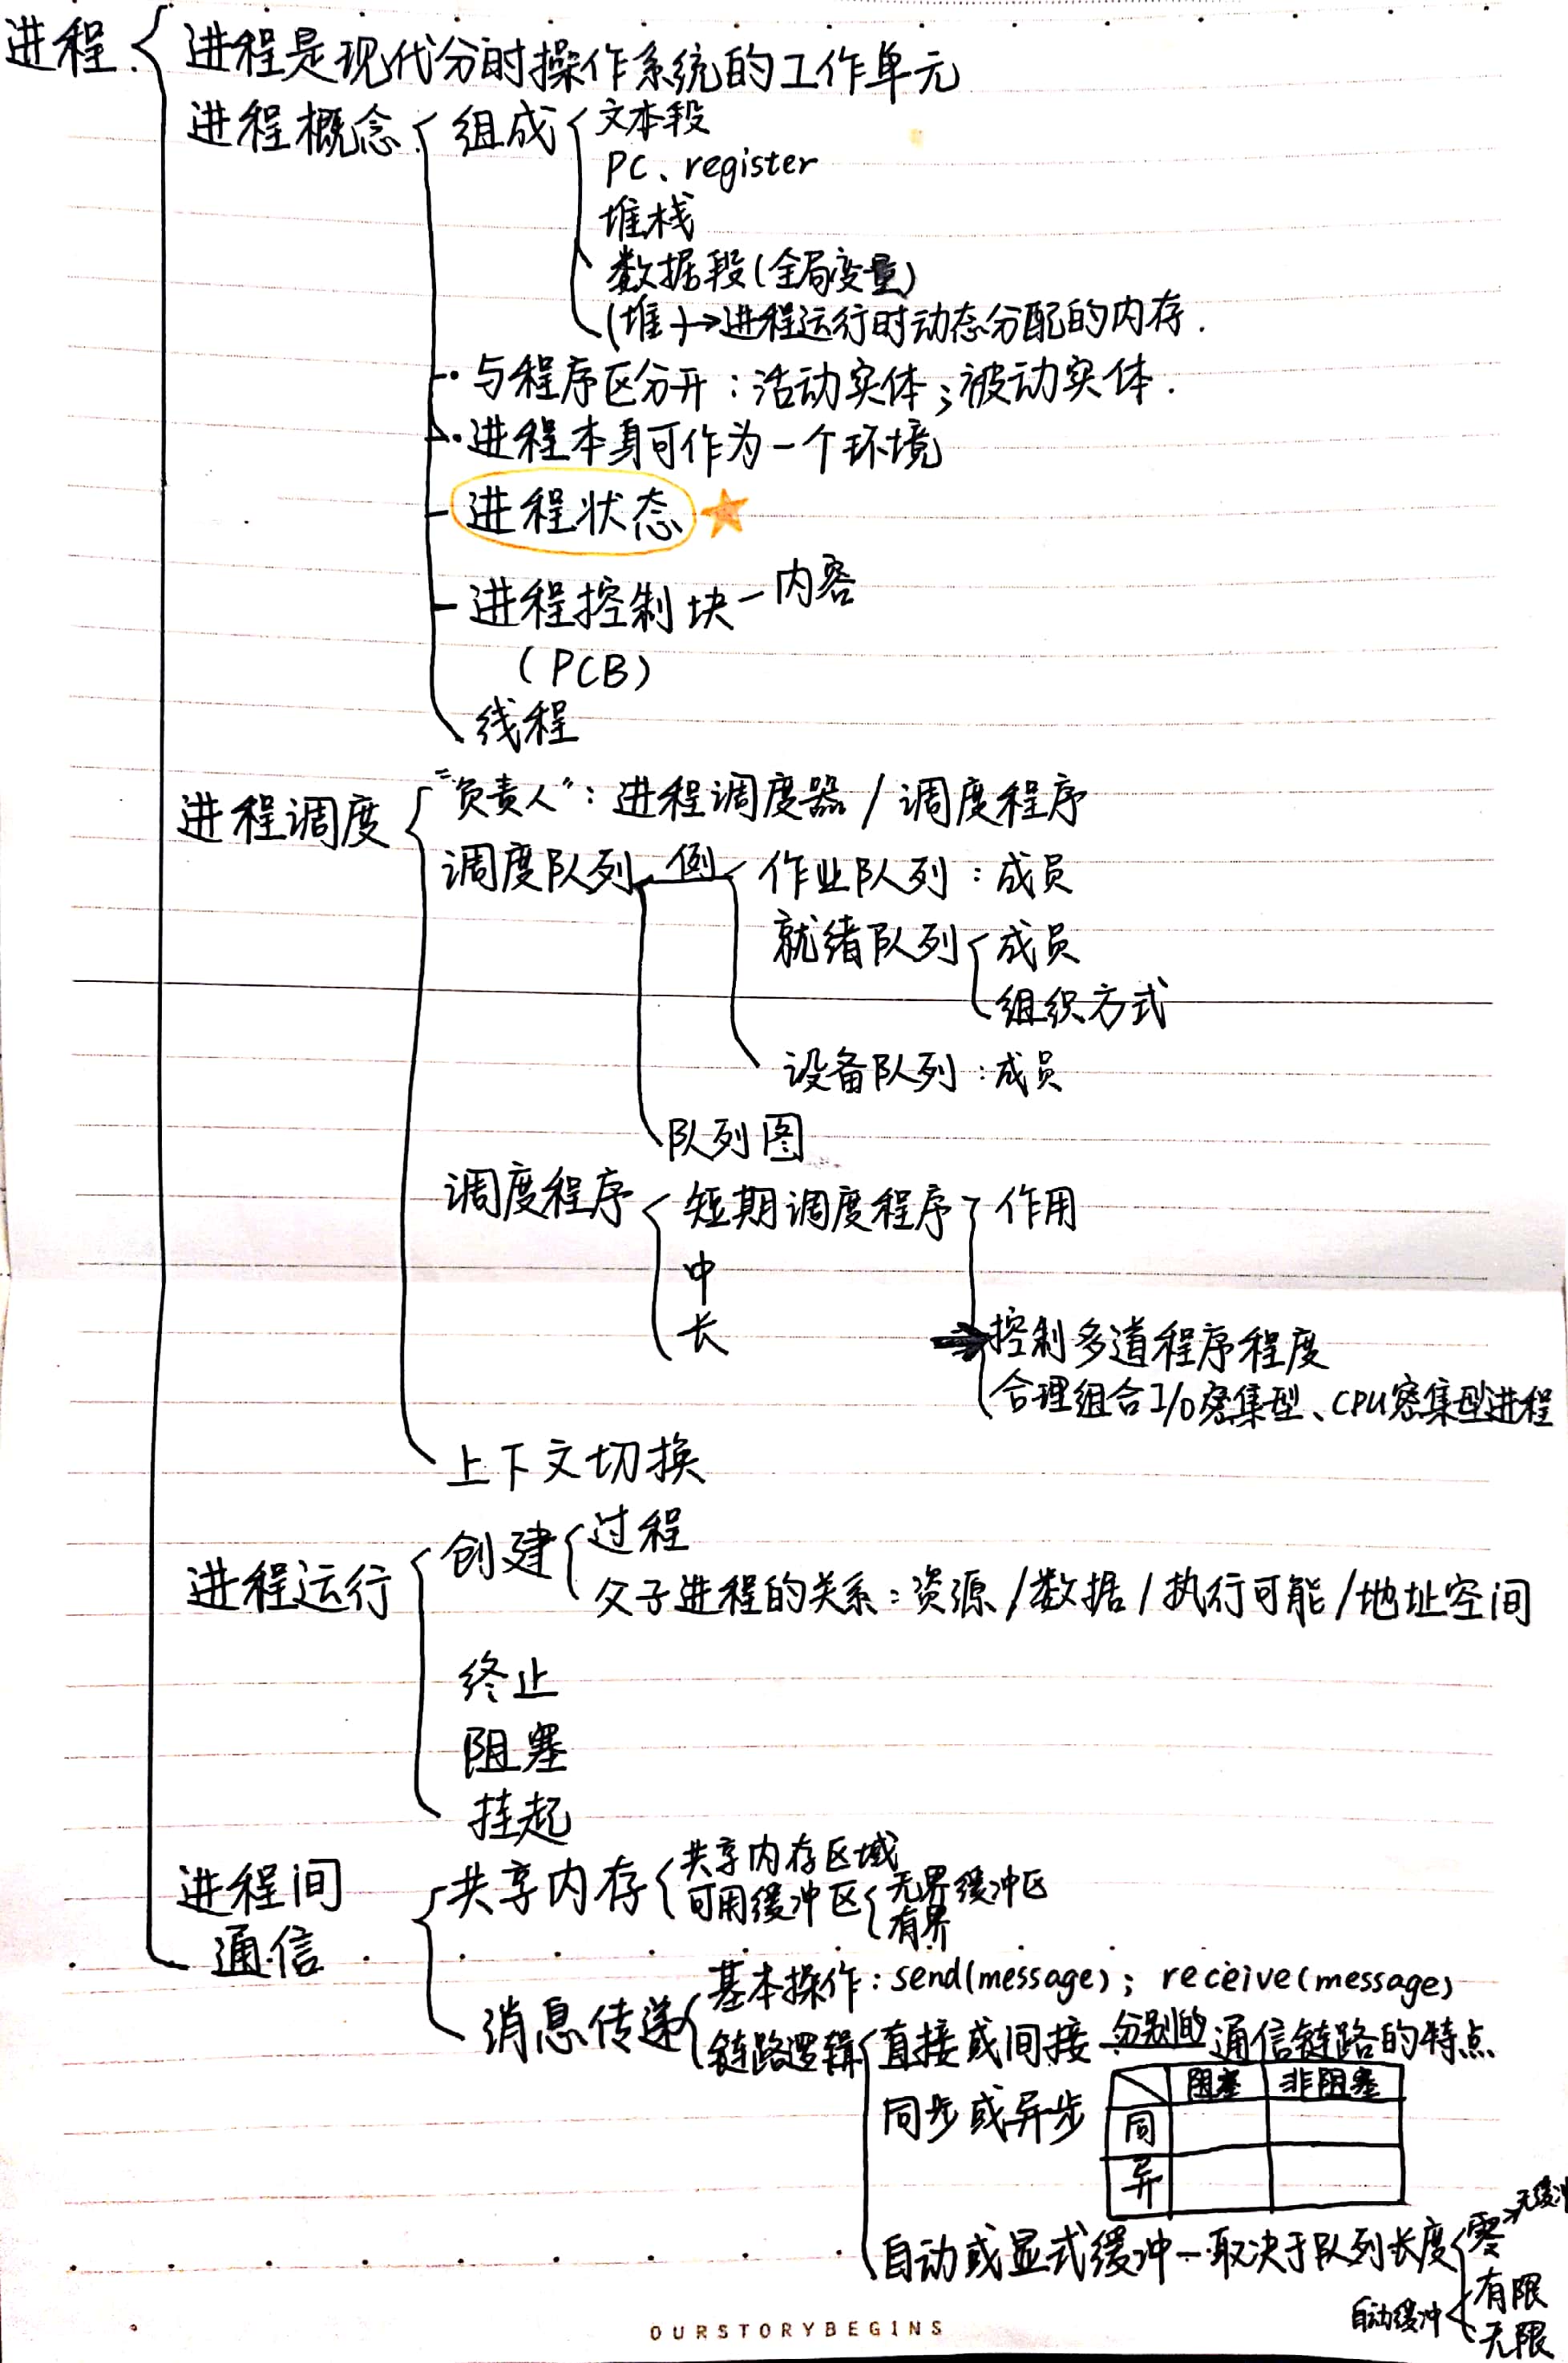 进程
进程是现代分时操作系统的工作单元
进程概念
组成
文本段
PC、register
堆栈
数据段(全局变量)
(堆)→进程运行时动态分配的内存.
与程序区分开:活动实体;被动实体.
进程本身可作为一个环境
进程状态
进程控制块—内容
(PCB)
线程
进程调度
"负责人":进程调度器/调度程序
调度队列 例 作业队列:成员
就绪队列 成员
组织方式
设备队列:成员
队列图
调度程序 短期调度程序 作用
中
长
控制多道程序程度
合理组合I/O密集型、CPU密集型进程
上下文切换
进程运行
创建 过程
父子进程的关系:资源/数据/执行可能/地址空间
终止
阻塞
挂起
进程间
通信
共享内存 共享内存区域
可用缓冲区 无界缓冲区
有界
消息传递 基本操作:send(message);receive(message)
链路逻辑 直接或间接 分别的 通信链路的特点
同步或异步
阻塞 非阻塞
同
异
自动或显式缓冲—取决于队列长度 零→无缓冲
自动缓冲 有限
无限
OURSTORYBEGINS